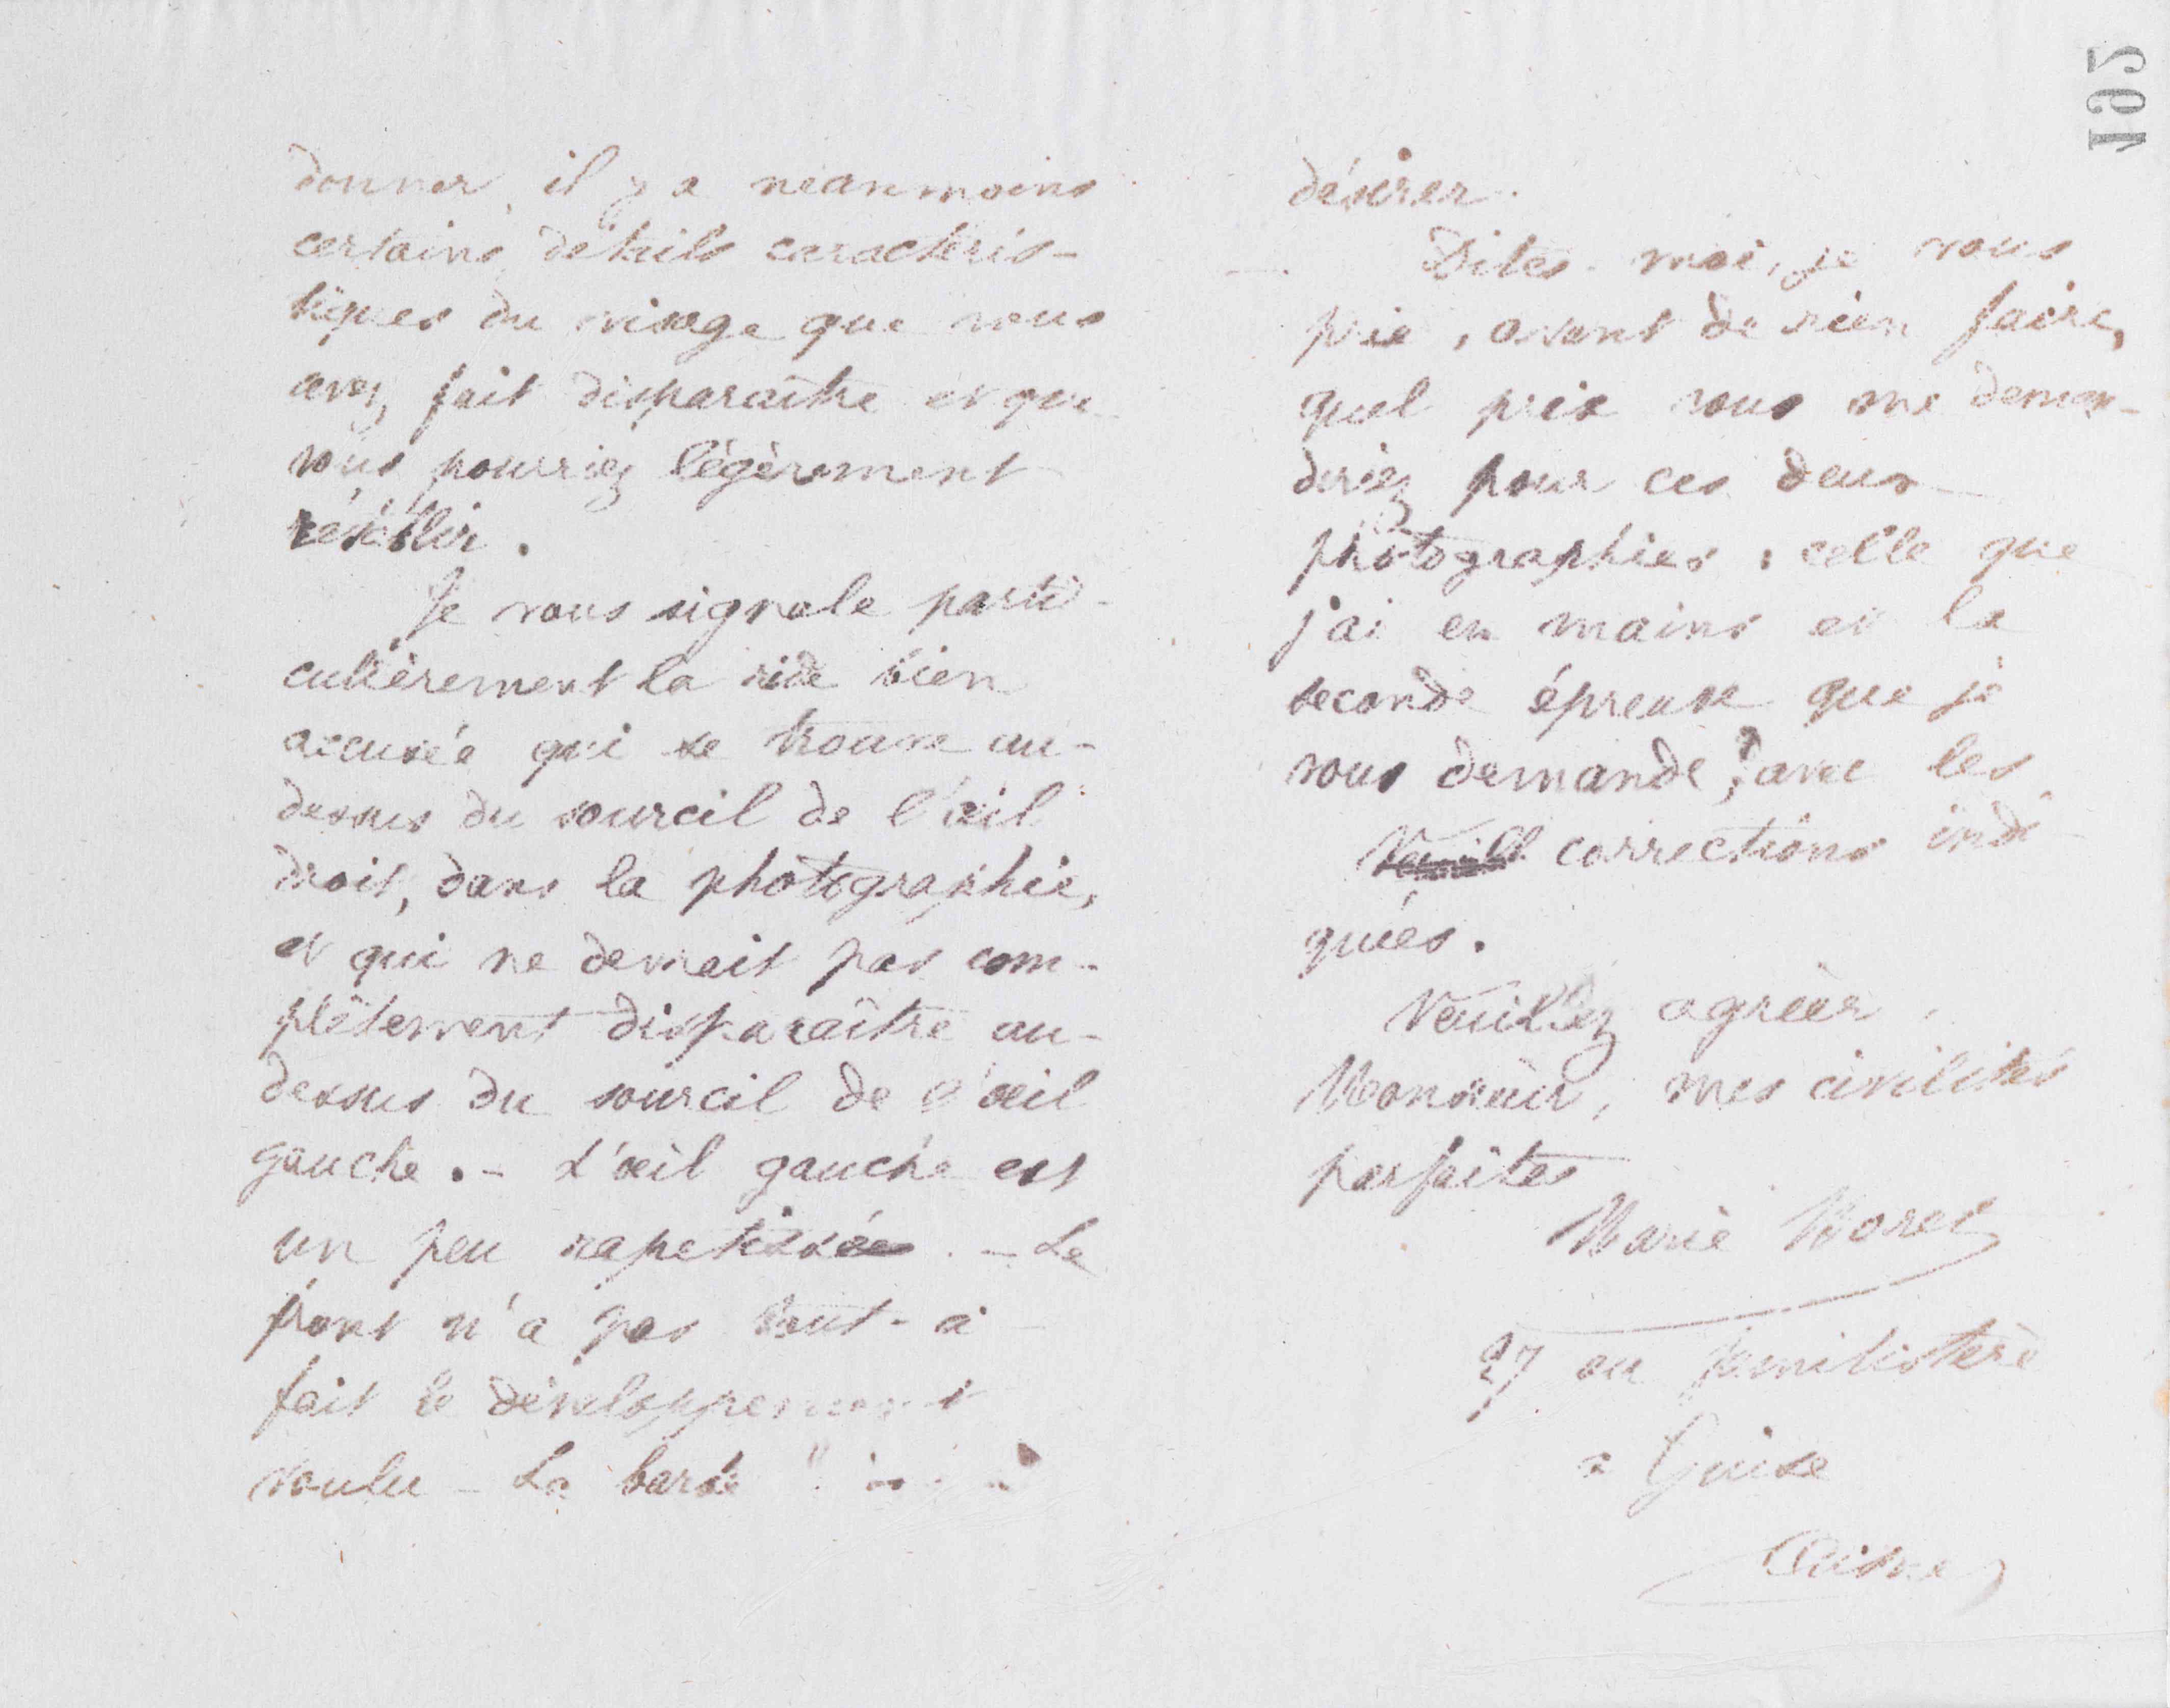 195
donner, il y a néanmoins
certains détails caractéris-
tiques du visage que vous
avez fait disparaître et que
vous pourriez légèrement
rétablir.
Je vous signale parti-
culièrement la ride bien
accusée qui se trouve au-
dessus du sourcil de l'œil
droit, dans la photographie,
et qui ne devrait pas com-
plètement disparaître au-
dessus du sourcil de l'œil
gauche. - L'œil gauche est
un peu rapetissé. - Le
front n'a pas tout-à-
fait le développement
voulu - La barbe
désirer.
Dites-moi, je vous
prie, avant de rien faire,
quel prix vous me deman-
deriez pour ces deux
photographies, celle que
j'ai en mains et la
seconde épreuve que je
vous demande, avec les
corrections indi
quées.
Veuillez agréer,
Monsieur, mes civilités
parfaites
Marie Moret
27 au familistère
à Guise
Aisne